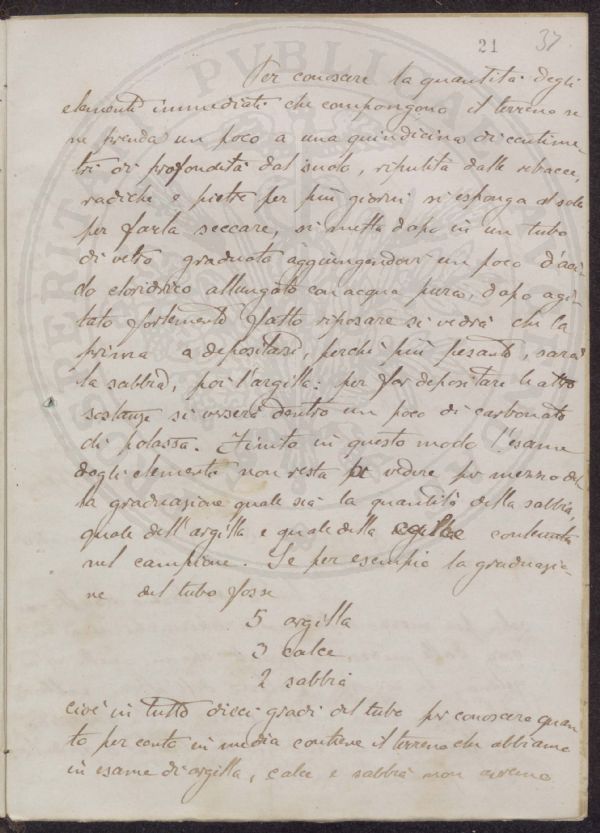 21 37
Per conoscere la quantità degli
elementi immediati che compongono il terreno se
ne prenda un poco a una quindicina di centime-
tri di profondità dal suolo, ripulita dalle erbacce,
radiche e pietre per più giorni si esponga al sole
per farla seccare, si metta dopo in un tubo
di vetro graduato aggiungendovi un poco d'aci-
do cloridrico allungato con acqua pura, dopo agi-
tato fortemente fatto riposare si vedrà che la
prima a depositarsi, perchè più pesante, sarà
la sabbia, poi l'argilla: per far depositare le altre
sostanze si verserà dentro un poco di carbonato
di potassa. Finito in questo modo l'esame
degli elementi non resta che vedere per mezzo del
la graduazione quale sia la quantità della sabbia,
quale dell'argilla e quale della calce contenuta
nel campione. Se per esempio la graduazio-
ne del tubo fosse
5 argilla
3 calce
2 sabbia
cioè in tutto dieci gradi del tubo per conoscere quan-
to per cento in media contiene il terreno che abbiamo
in esame di argilla, calce e sabbia non avremo
PVBLICA